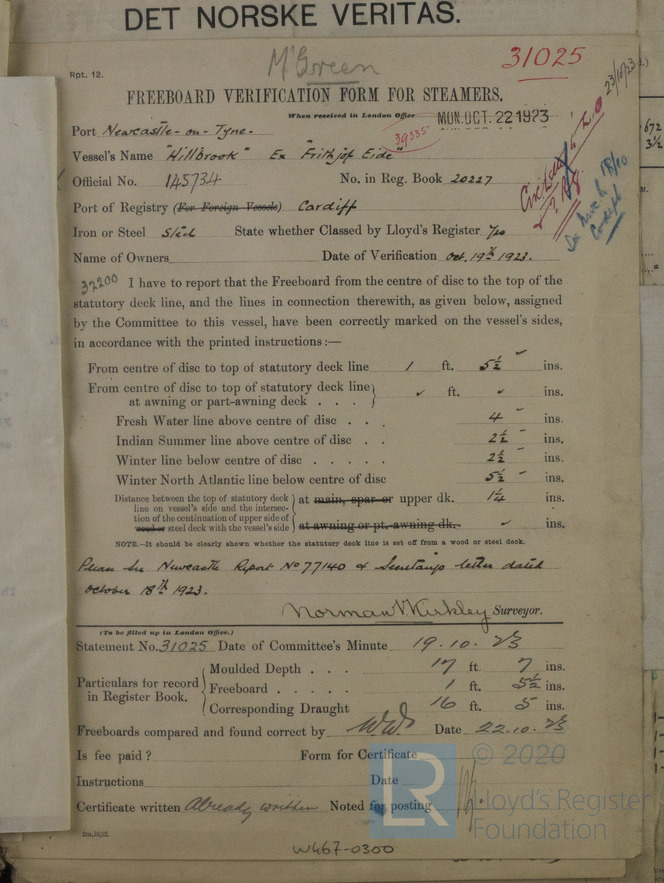 DET NORSKE VERITAS.
Rpt. 12.
McGreen
31025
FREEBOARD VERIFICATION FORM FOR STEAMERS.
When received in London Office
MON. OCT. 22 1923
23/10/23
39335
Port Newcastle-on-Tyne.
Vessel's Name "Hillbrook" Ex "Frithjof Eide"
Official No. 145734 No. in Reg. Book 20227
Port of Registry (For Foreign Vessels) Cardiff
Iron or Steel Steel State whether Classed by Lloyd's Register Yes
Name of Owners Date of Verification Oct. 19th 1923.
32200 I have to report that the Freeboard from the centre of disc to the top of the
statutory deck line, and the lines in connection therewith, as given below, assigned
by the Committee to this vessel, have been correctly marked on the vessel's sides,
in accordance with the printed instructions :—
From centre of disc to top of statutory deck line 1 ft. 5½ ins.
From centre of disc to top of statutory deck line
at awning or part-awning deck . . . ft. ins.
Fresh Water line above centre of disc . . 4 ins.
Indian Summer line above centre of disc . . 2½ ins.
Winter line below centre of disc . . . . . 2½ ins.
Winter North Atlantic line below centre of disc 5½ ins.
Distance between the top of statutory deck
line on vessel's side and the intersec-
tion of the continuation of upper side of
wood or steel deck with the vessel's side
at main, spar or upper dk. 1¼ ins.
at awning or pt. awning dk. ins.
NOTE.—It should be clearly shown whether the statutory deck line is set off from a wood or steel deck.
Please see Newcastle Report No 77140 & Secretary's letter dated
October 18th 1923.
Norman V Kirkley Surveyor.
(To be filled up in London Office.)
Statement No. 31025 Date of Committee's Minute 19.10.23
Particulars for record
in Register Book.
Moulded Depth . . . 17 ft. 7 ins.
Freeboard . . . . . 1 ft. 5½ ins.
Corresponding Draught 16 ft. 5 ins.
Freeboards compared and found correct by Date 22.10.23
Is fee paid? Form for Certificate
Instructions Date
Certificate written Already written Noted for posting
2m,10,22.
W467-0300
© 2020
LR
Lloyd's Register
Foundation
672
3½